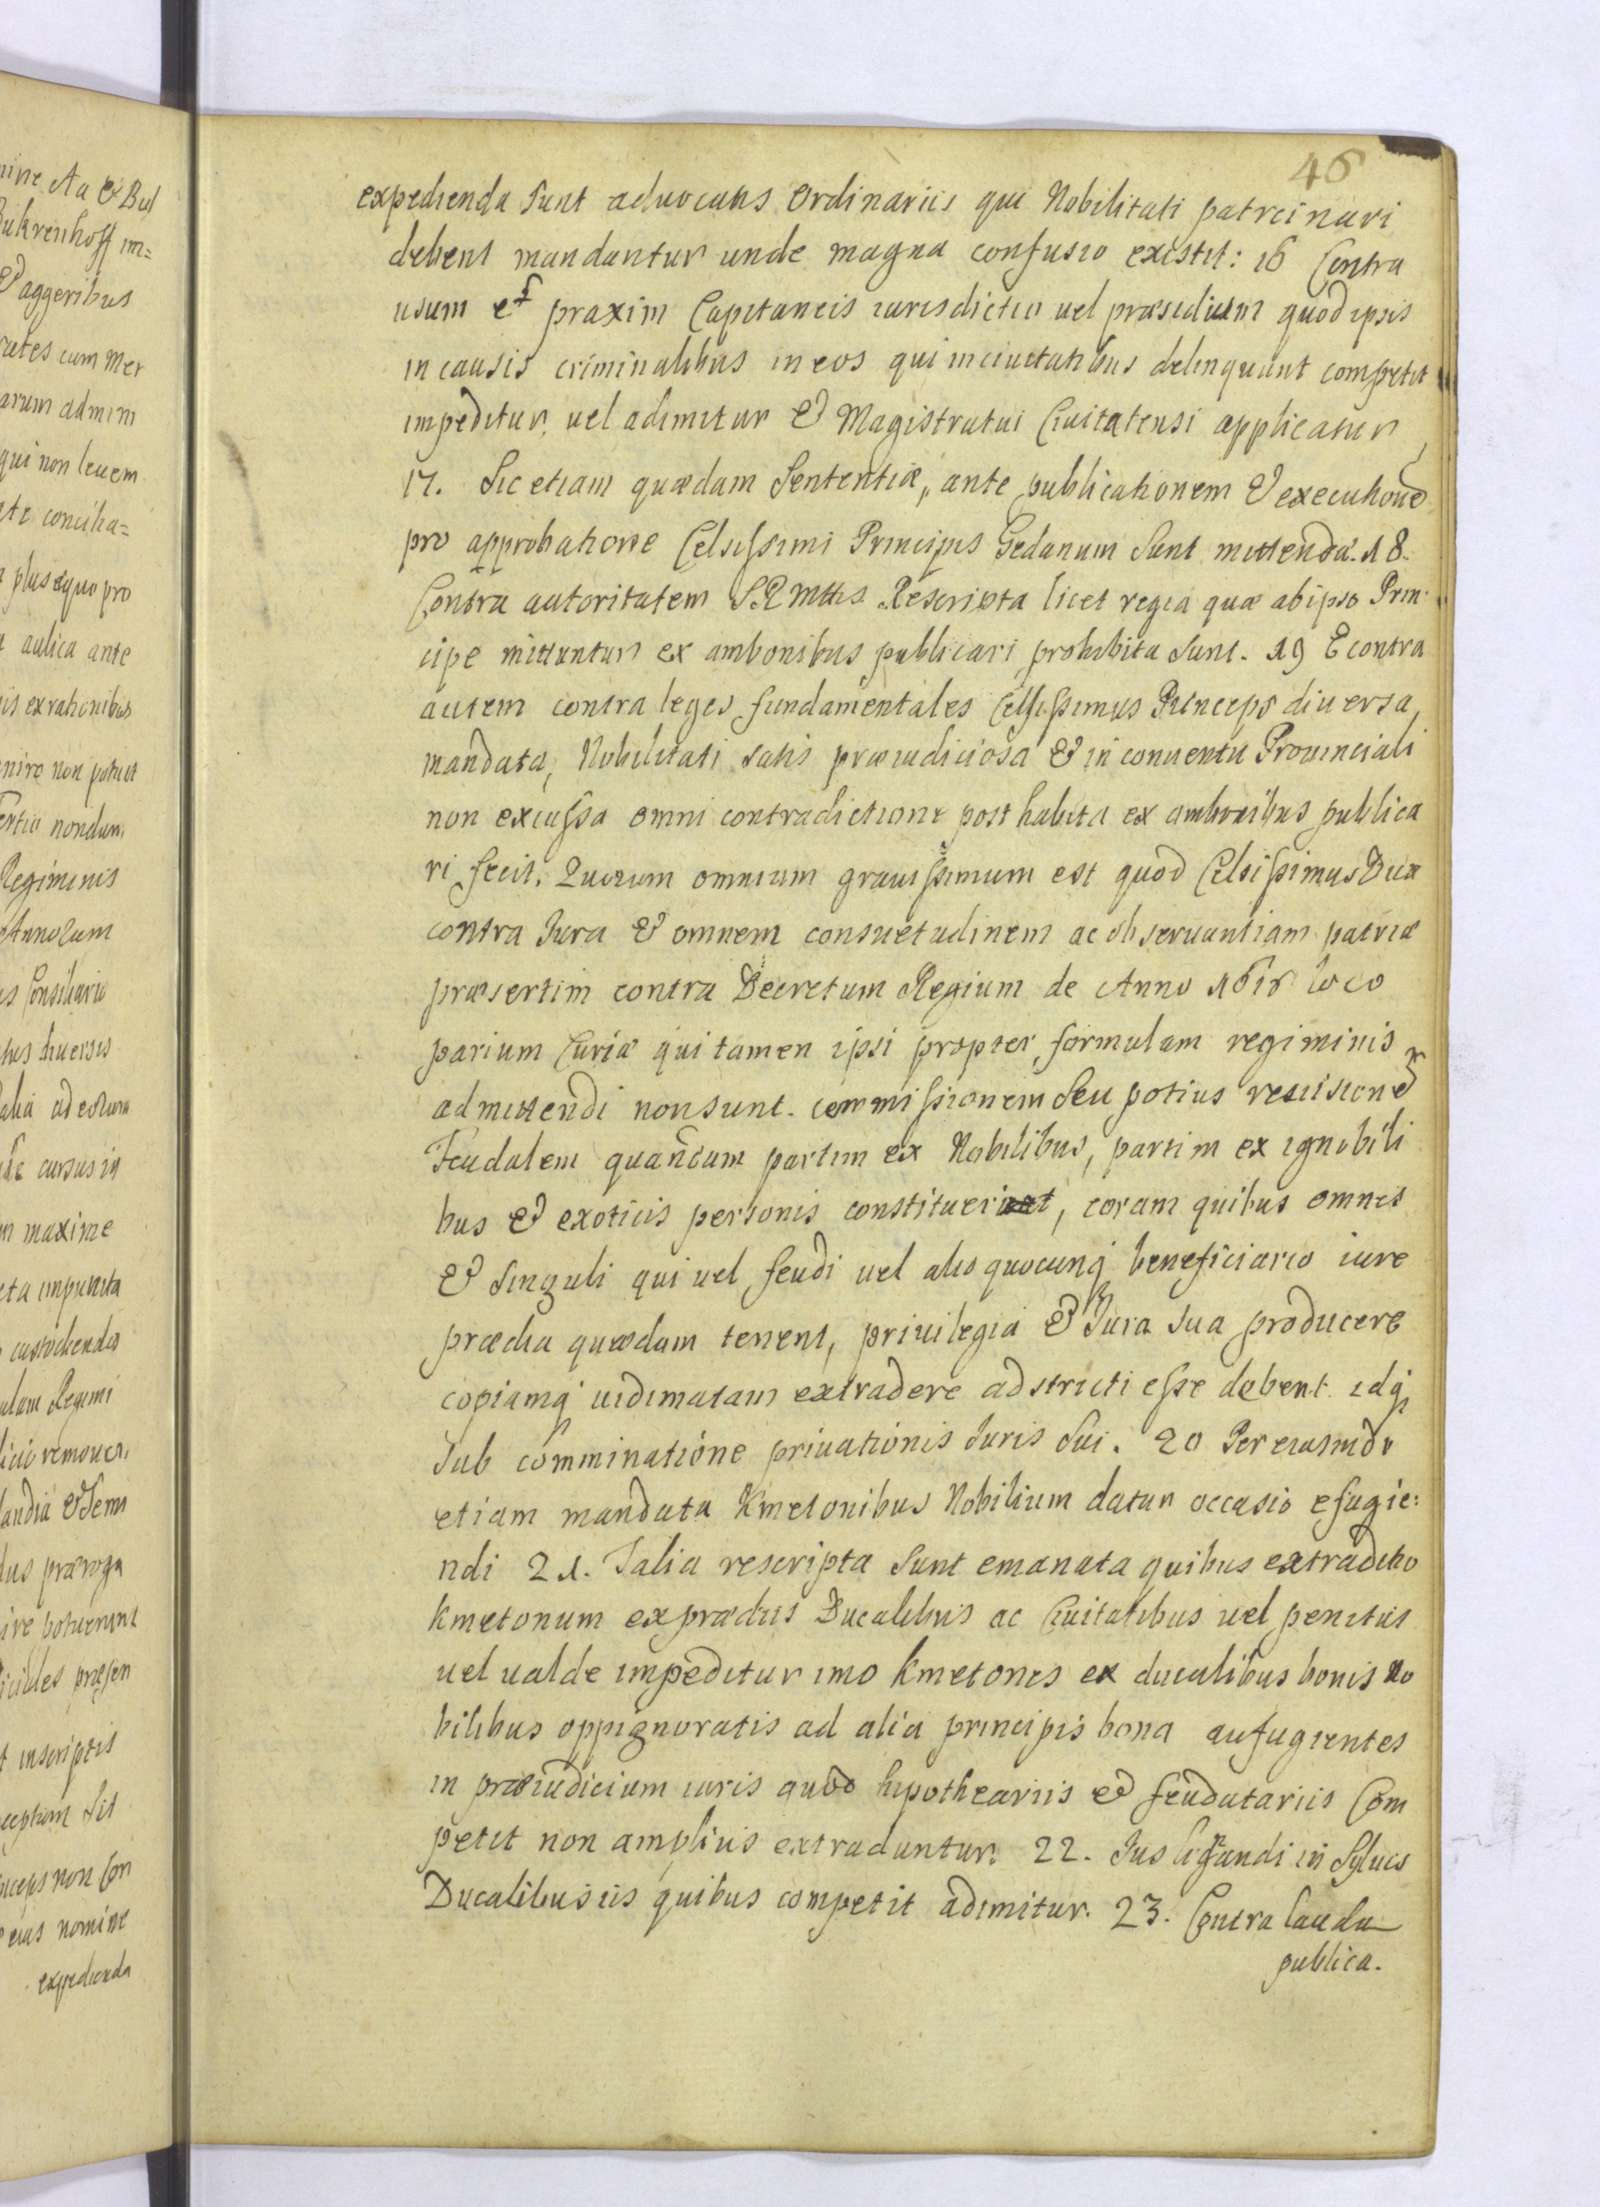 46
expedienda Sunt aduocatis Ordinariis qui Nobilitati patrcinari
debent mandantur unde magna confusio existit: 16 Contra
usum et praxim Capitaneis iurisdictio uel præsidium quod ipsis
in causis criminalibus in eos qui in ciuitatibus delinquunt competit
impeditur uel adimitur & Magistratui Ciuitatensi applicatur
17. Sic etiam quædam Sententiæ, ante publicationem & executionē
pro approbatione Celsissimi Principis Gedanum Sunt mittenda. 18.
Contra autoritatem S.R.Mttis Rescripta licet regia quæ ab ipso Prin
cipe mittuntur ex ambonibus publicari prohibita Sunt. 19 E contra
autem contra leges fundamentales Celsissimus Princeps diuersa,
mandata, Nobilitati satis præiudiciosa & in conuentu Prouinciali
non excussa omni contradictione post habita ex ambonibus publica
ri fecit. Quorum omnium grauissimum est quod Celsissimus Dux
contra Jura & omnem consuetudinem ac obseruantiam patriæ
præsertim contra Decretum Regium de Anno loco
parium Curiæ qui tamen ipsi propter formulam regiminis
admittendi non sunt. commissionem Seu potius reuisionē
Feudalem quandam partim ex Nobilibus, partim ex ignobili
bus & exoticis personis constituerit, coram quibus omnes
& Singuli qui uel feudi uel alio quocunq beneficiario iure
prædia quædam tenent, priuilegia & Jura Sua producere
copiamq uidimatam extradere adstricti esse debent idq
Sub comminatione priuationis Juris Sui. 20 Per eiusmodi
etiam mandata Kmetonibus Nobilium datur occasio efugie:
ndi 21. Talia rescripta Sunt emanata quibus extraditio
kmetonum ex prædiis Ducalibus ac Ciuitatibus uel penitus
uel ualde impeditur imo kmetones ex ducalibus bonis no
bilibus oppignoratis ad alia principis bona aufugientes
in præiudicium iuris quod hipothecariis & feudatariis Com
petit non amplius extraduntur. 22. Jus lignandi in Syluis
Ducalibus iis quibus competit adimitur. 23. Contra lauda
publica.